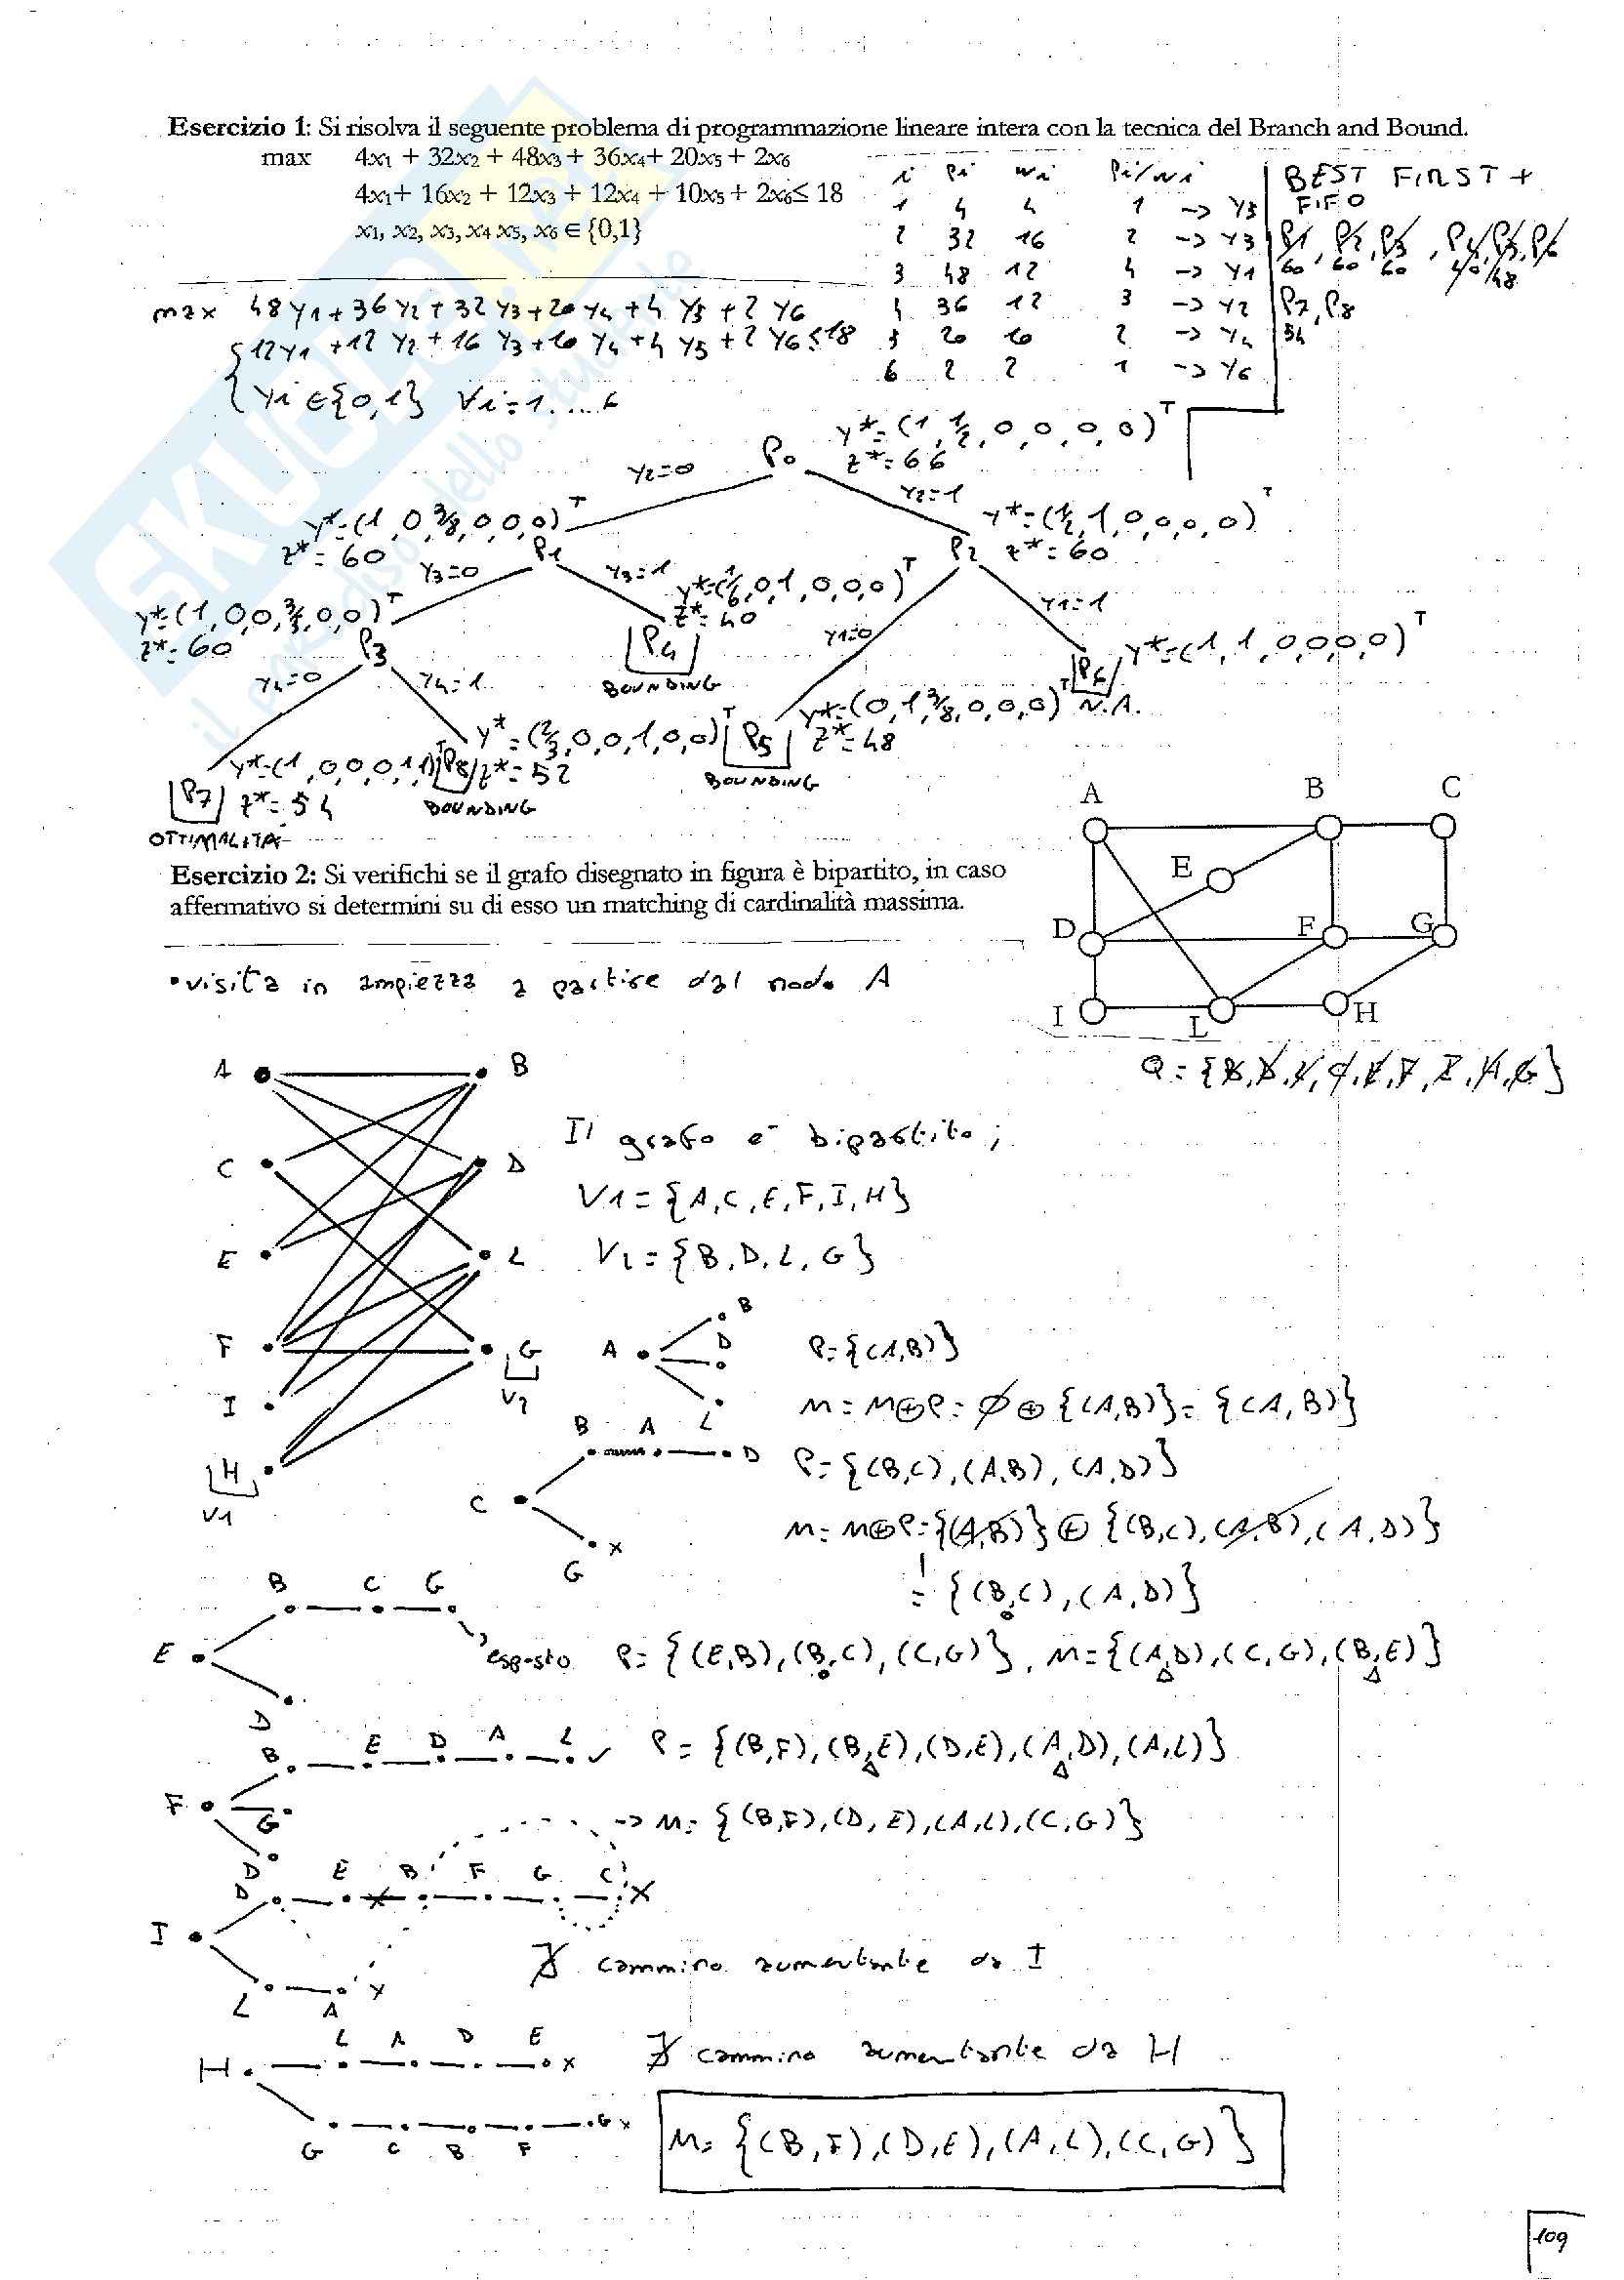 Esercizio 1: Si risolva il seguente problema di programmazione lineare intera con la tecnica del Branch and Bound.
max 4x1 + 32x2 + 48x3 + 36x4+ 20x5 + 2x6
4x1+ 16x2 + 12x3 + 12x4 + 10x5 + 2x6≤ 18
x1, x2, x3, x4 x5, x6 ∈ {0,1}
i pi wi pi/wi
1 4 4 1 -> y5
2 32 16 2 -> y3
3 48 12 4 -> y1
4 36 12 3 -> y2
5 20 10 2 -> y4
6 2 2 1 -> y6
BEST FIRST +
FIFO
P1, P2, P3, P4, P5, P6
60 60 60 40 48
P7, P8
54
max 48y1+36y2+32y3+20y4+4y5+2y6
12y1+12y2+16y3+10y4+4y5+2y6≤18
yi∈{0,1} ∀i=1....6
P0 y*=(1,1/2,0,0,0,0)T
z*=66
y2=0
y2=1
y*=(1,0,3/8,0,0,0)T
z*=60
P1
y*=(1/2,1,0,0,0,0)T
P2 z*=60
y3=0
y3=1
y*=(1/6,0,1,0,0,0)T
z*=40
P4
BOUNDING
y1=0
y1=1
y*=(1,0,0,3/5,0,0)T
z*=60
P3
P6 y*=(1,1,0,0,0,0)T
N.A.
y4=0
y4=1
y*=(0,1,3/8,0,0,0)T
P5 z*=48
BOUNDING
y*=(2/3,0,0,1,0,0)T
P8 z*=52
BOUNDING
y*=(1,0,0,0,1,1)T
P7 z*=54
OTTIMALITA
Esercizio 2: Si verifichi se il grafo disegnato in figura è bipartito, in caso
affermativo si determini su di esso un matching di cardinalità massima.
A B C
E
D F G
I L H
•visita in ampiezza a partire dal nodo A
Q={B,D,L,C,E,F,I,H,G}
A B
C D
E L
F G
I V2
H
V1
Il grafo e' bipartito;
V1={A,C,E,F,I,H}
V2={B,D,L,G}
A B D L
P={(A,B)}
M=M⊕P=∅⊕{(A,B)}={(A,B)}
B A D
C
G x
P={(B,C),(A,B),(A,D)}
M=M⊕P={(A,B)}⊕{(B,C),(A,B),(A,D)}
={(B,C),(A,D)}
B C G
E
D
esposto P={(E,B),(B,C),(C,G)}, M={(A,D),(C,G),(B,E)}
B E D A L
F
G
D
P={(B,F),(B,E),(D,E),(A,D),(A,L)}
-> M={(B,F),(D,E),(A,L),(C,G)}
D E B F G C x
I
L A x
∄ cammino aumentante da I
H L A D E x
G C B F G x
∄ cammino aumentante da H
M={(B,F),(D,E),(A,L),(C,G)}
109
SKUOLA
il paradiso dello studente